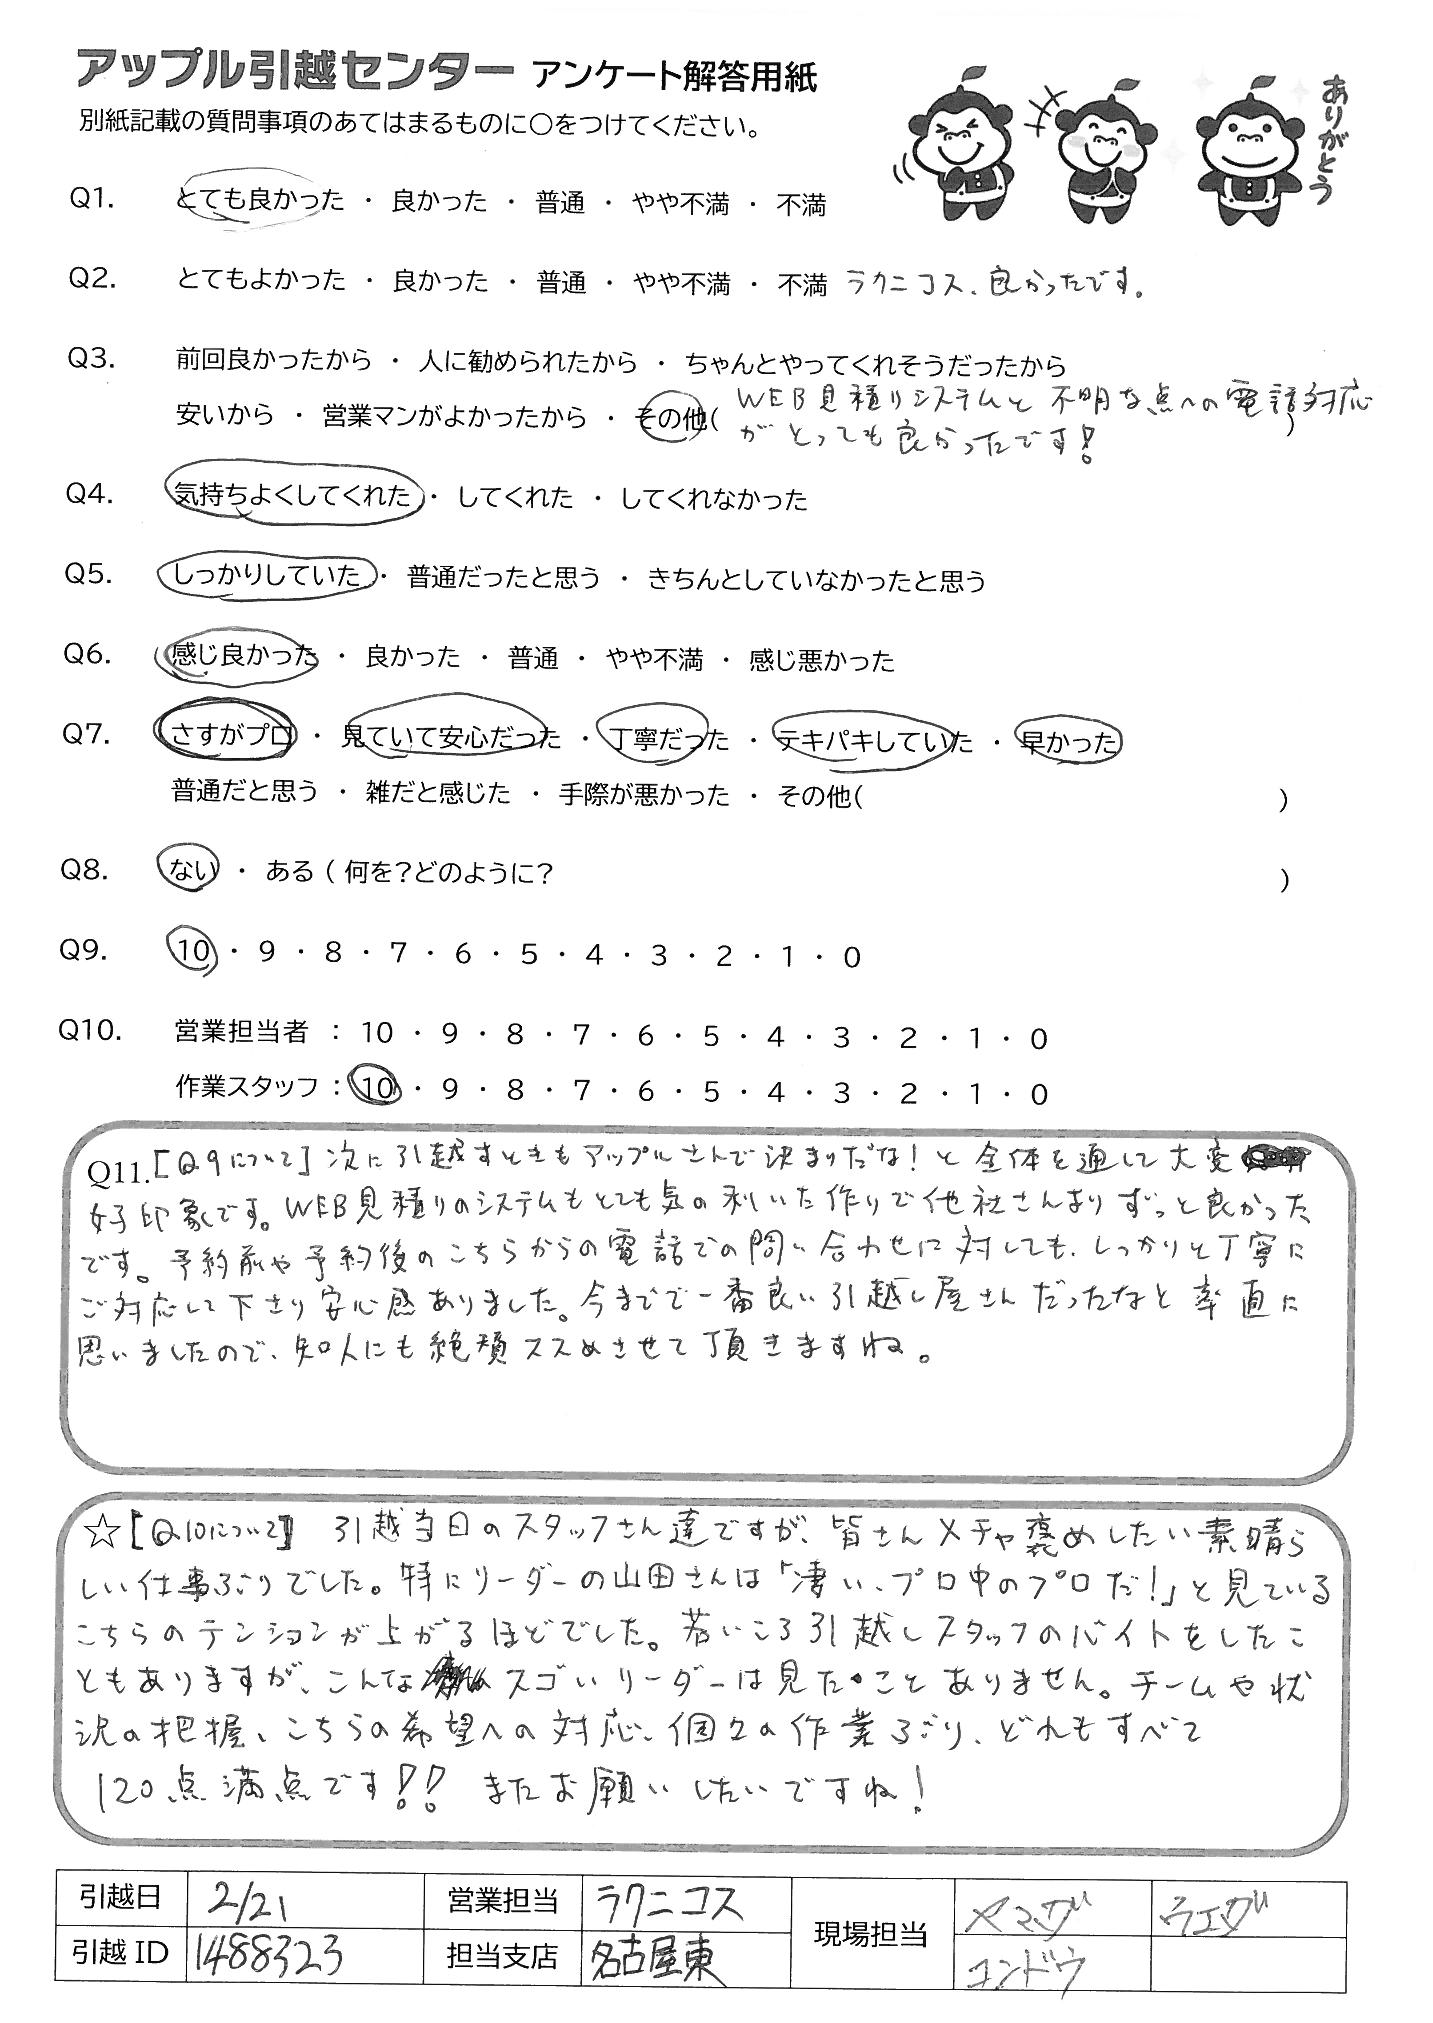 アップル引越センター アンケート解答用紙
別紙記載の質問事項のあてはまるものに○をつけてください。
ありがとう
Q1. とても良かった ・ 良かった ・ 普通 ・ やや不満 ・ 不満
Q2. とてもよかった ・ 良かった ・ 普通 ・ やや不満 ・ 不満 ラクニコス、良かったです。
Q3. 前回良かったから ・ 人に勧められたから ・ ちゃんとやってくれそうだったから
安いから ・ 営業マンがよかったから ・ その他( WEB見積りシステムと 不明な点への電話対応
がとっても良かったです! )
Q4. 気持ちよくしてくれた ・ してくれた ・ してくれなかった
Q5. しっかりしていた ・ 普通だったと思う ・ きちんとしていなかったと思う
Q6. 感じ良かった ・ 良かった ・ 普通 ・ やや不満 ・ 感じ悪かった
Q7. さすがプロ ・ 見ていて安心だった ・ 丁寧だった ・ テキパキしていた ・ 早かった
普通だと思う ・ 雑だと感じた ・ 手際が悪かった ・ その他( )
Q8. ない ・ ある ( 何を?どのように? )
Q9. 10 ・ 9 ・ 8 ・ 7 ・ 6 ・ 5 ・ 4 ・ 3 ・ 2 ・ 1 ・ 0
Q10. 営業担当者 : 10 ・ 9 ・ 8 ・ 7 ・ 6 ・ 5 ・ 4 ・ 3 ・ 2 ・ 1 ・ 0
作業スタッフ : 10 ・ 9 ・ 8 ・ 7 ・ 6 ・ 5 ・ 4 ・ 3 ・ 2 ・ 1 ・ 0
Q11. [Q9について] 次に引越すときもアップルさんで決まりだな!と全体を通して大変
好印象です。WEB見積りのシステムもとても気の利いた作りで他社さんよりずっと良かった
です。予約前や予約後のこちらからの電話での問い合わせに対しても、しっかりと丁寧に
ご対応して下さり安心感ありました。今までで一番良い引越し屋さんだったなと率直に
思いましたので、知人にも絶賛ススめさせて頂きますね。
☆[Q10について] 引越当日のスタッフさん達ですが、皆さんメチャ褒めしたい素晴ら
しい仕事ぶりでした。特にリーダーの山田さんは「凄い、プロ中のプロだ!」と見ている
こちらのテンションが上がるほどでした。若いころ引越しスタッフのバイトをしたこ
ともありますが、こんなスゴいリーダーは見たことありません。チームや状
況の把握、こちらの希望への対応、個々の作業ぶり、どれもすべて
120点満点です!! またお願いしたいですね!
引越日 2/21 営業担当 ラクニコス 現場担当 ヤマダ ウエダ
引越ID 1488323 担当支店 名古屋東 コンドウ